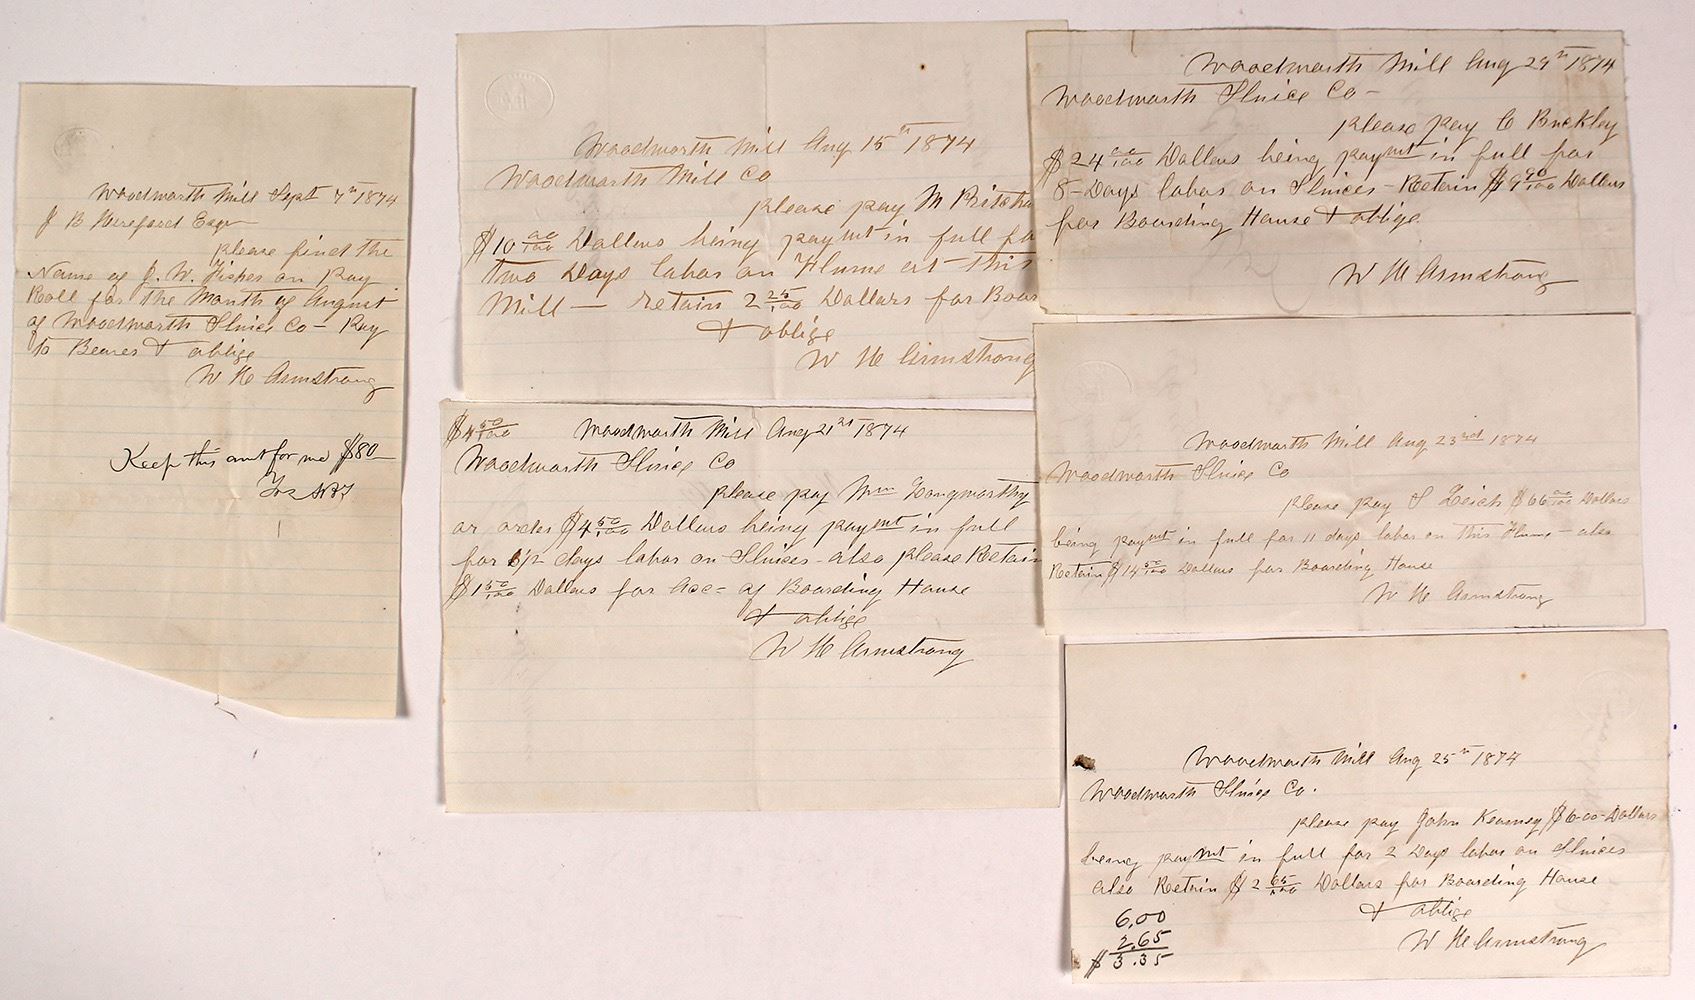 Woodworth Mill Sept 7th 1874
J B Hereford Esqr
please find the
Name of J. W. Fisher on Pay
Roll for the Month of August
of Woodworth Sluice Co - Pay
to Bearer & oblige
W H Armstrong
Keep this amt for me $80
Woodworth Mill Aug 15th 1874
Woodworth Mill Co
please pay M Ritcha
$10 00/100 Dollars being paymt in full fo
two Days labor on Flume at this
Mill — retain 2 25/100 Dollars for Boar
& oblige
W H Armstrong
$4 50/100 Woodworth Mill Aug 21st 1874
Woodworth Sluice Co
please pay Wm Longworthy
or order $4 50/100 Dollars being paymt in full
for 1 1/2 days labor on Sluices - also please Retain
$1 50/100 Dollars for Acc- of Boarding House
& oblige
W H Armstrong
Woodworth Mill Aug 29th 1874
Woodworth Sluice Co -
please pay C Buckley
$24 00/100 Dollars being paymt in full for
8 - Days labor on Sluices - Retain $9 90/100 Dollars
for Boarding House & oblige
W H Armstrong
Woodworth Mill Aug 23rd 1874
Woodworth Sluice Co
please pay S Leich $66 00/100 Dollars
being paymt in full for 11 days labor on this Flume - also
Retain $14 50/100 Dollars for Boarding House
W H Armstrong
Woodworth Mill Aug 25th 1874
Woodworth Sluice Co.
please pay John Kearney $6-00- Dollars
being paymt in full for 2 Days labor on Sluices
also Retain $2 65/100 Dollars for Boarding House
& oblige
W H Armstrong
6.00
2.65
$ 3.35